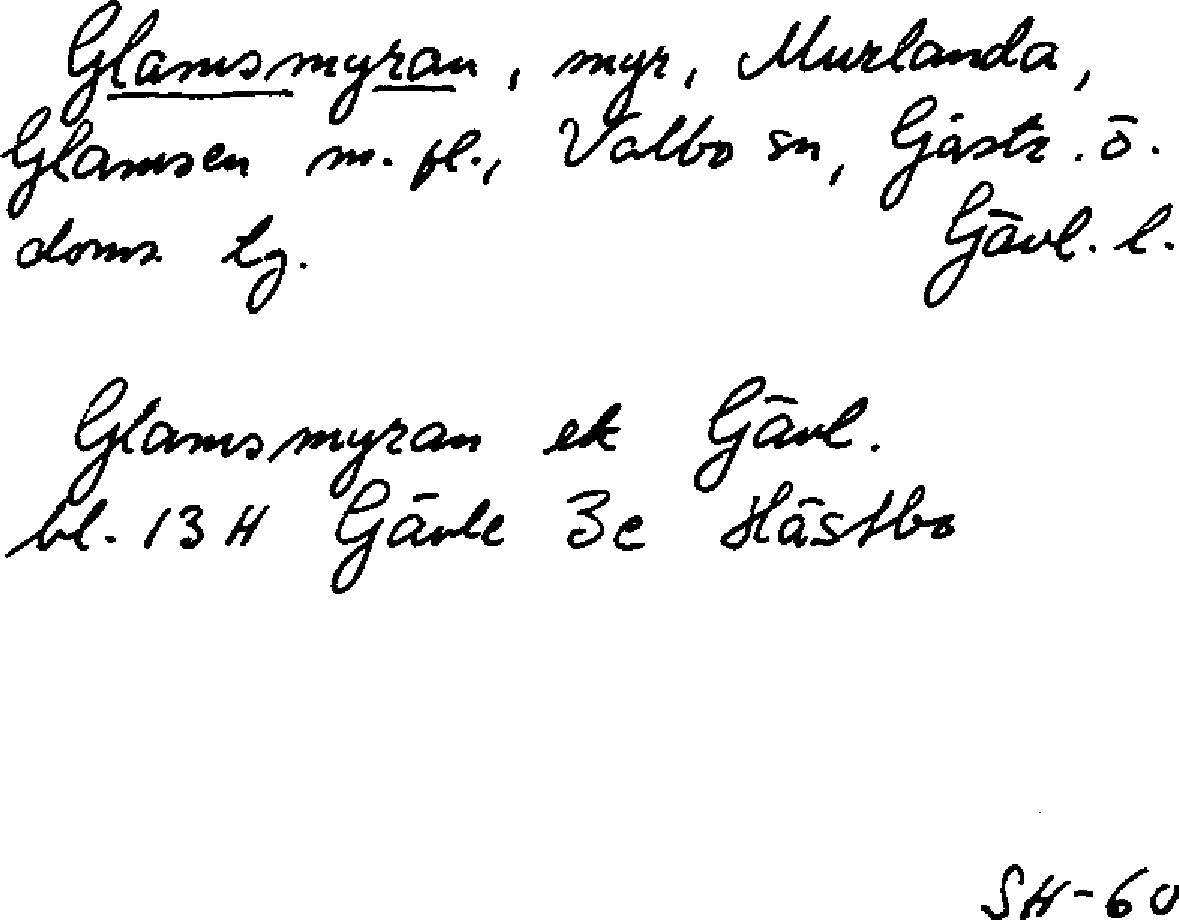 Glamsmyran, myr, Murlanda,
Glamsen m. fl., Valbo sn, Gästr. ö.
doms. lg. Gävl. l.
Glamsmyran ek Gävl.
bl. 13 H Gävle 3c Hästbo
SH-60